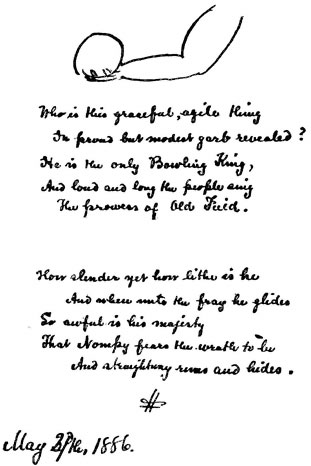 Who is this graceful, agile thing
In proud but modest garb revealed?
He is the only Bowling King,
And loud and long the people sing
The prowess of Old Fuid.
How slender yet how lithe is he
And when unto the fray he glides
So awful is his majesty
That Nompy fears the wrath to be
And straightway runs and hides.
May, 1886.